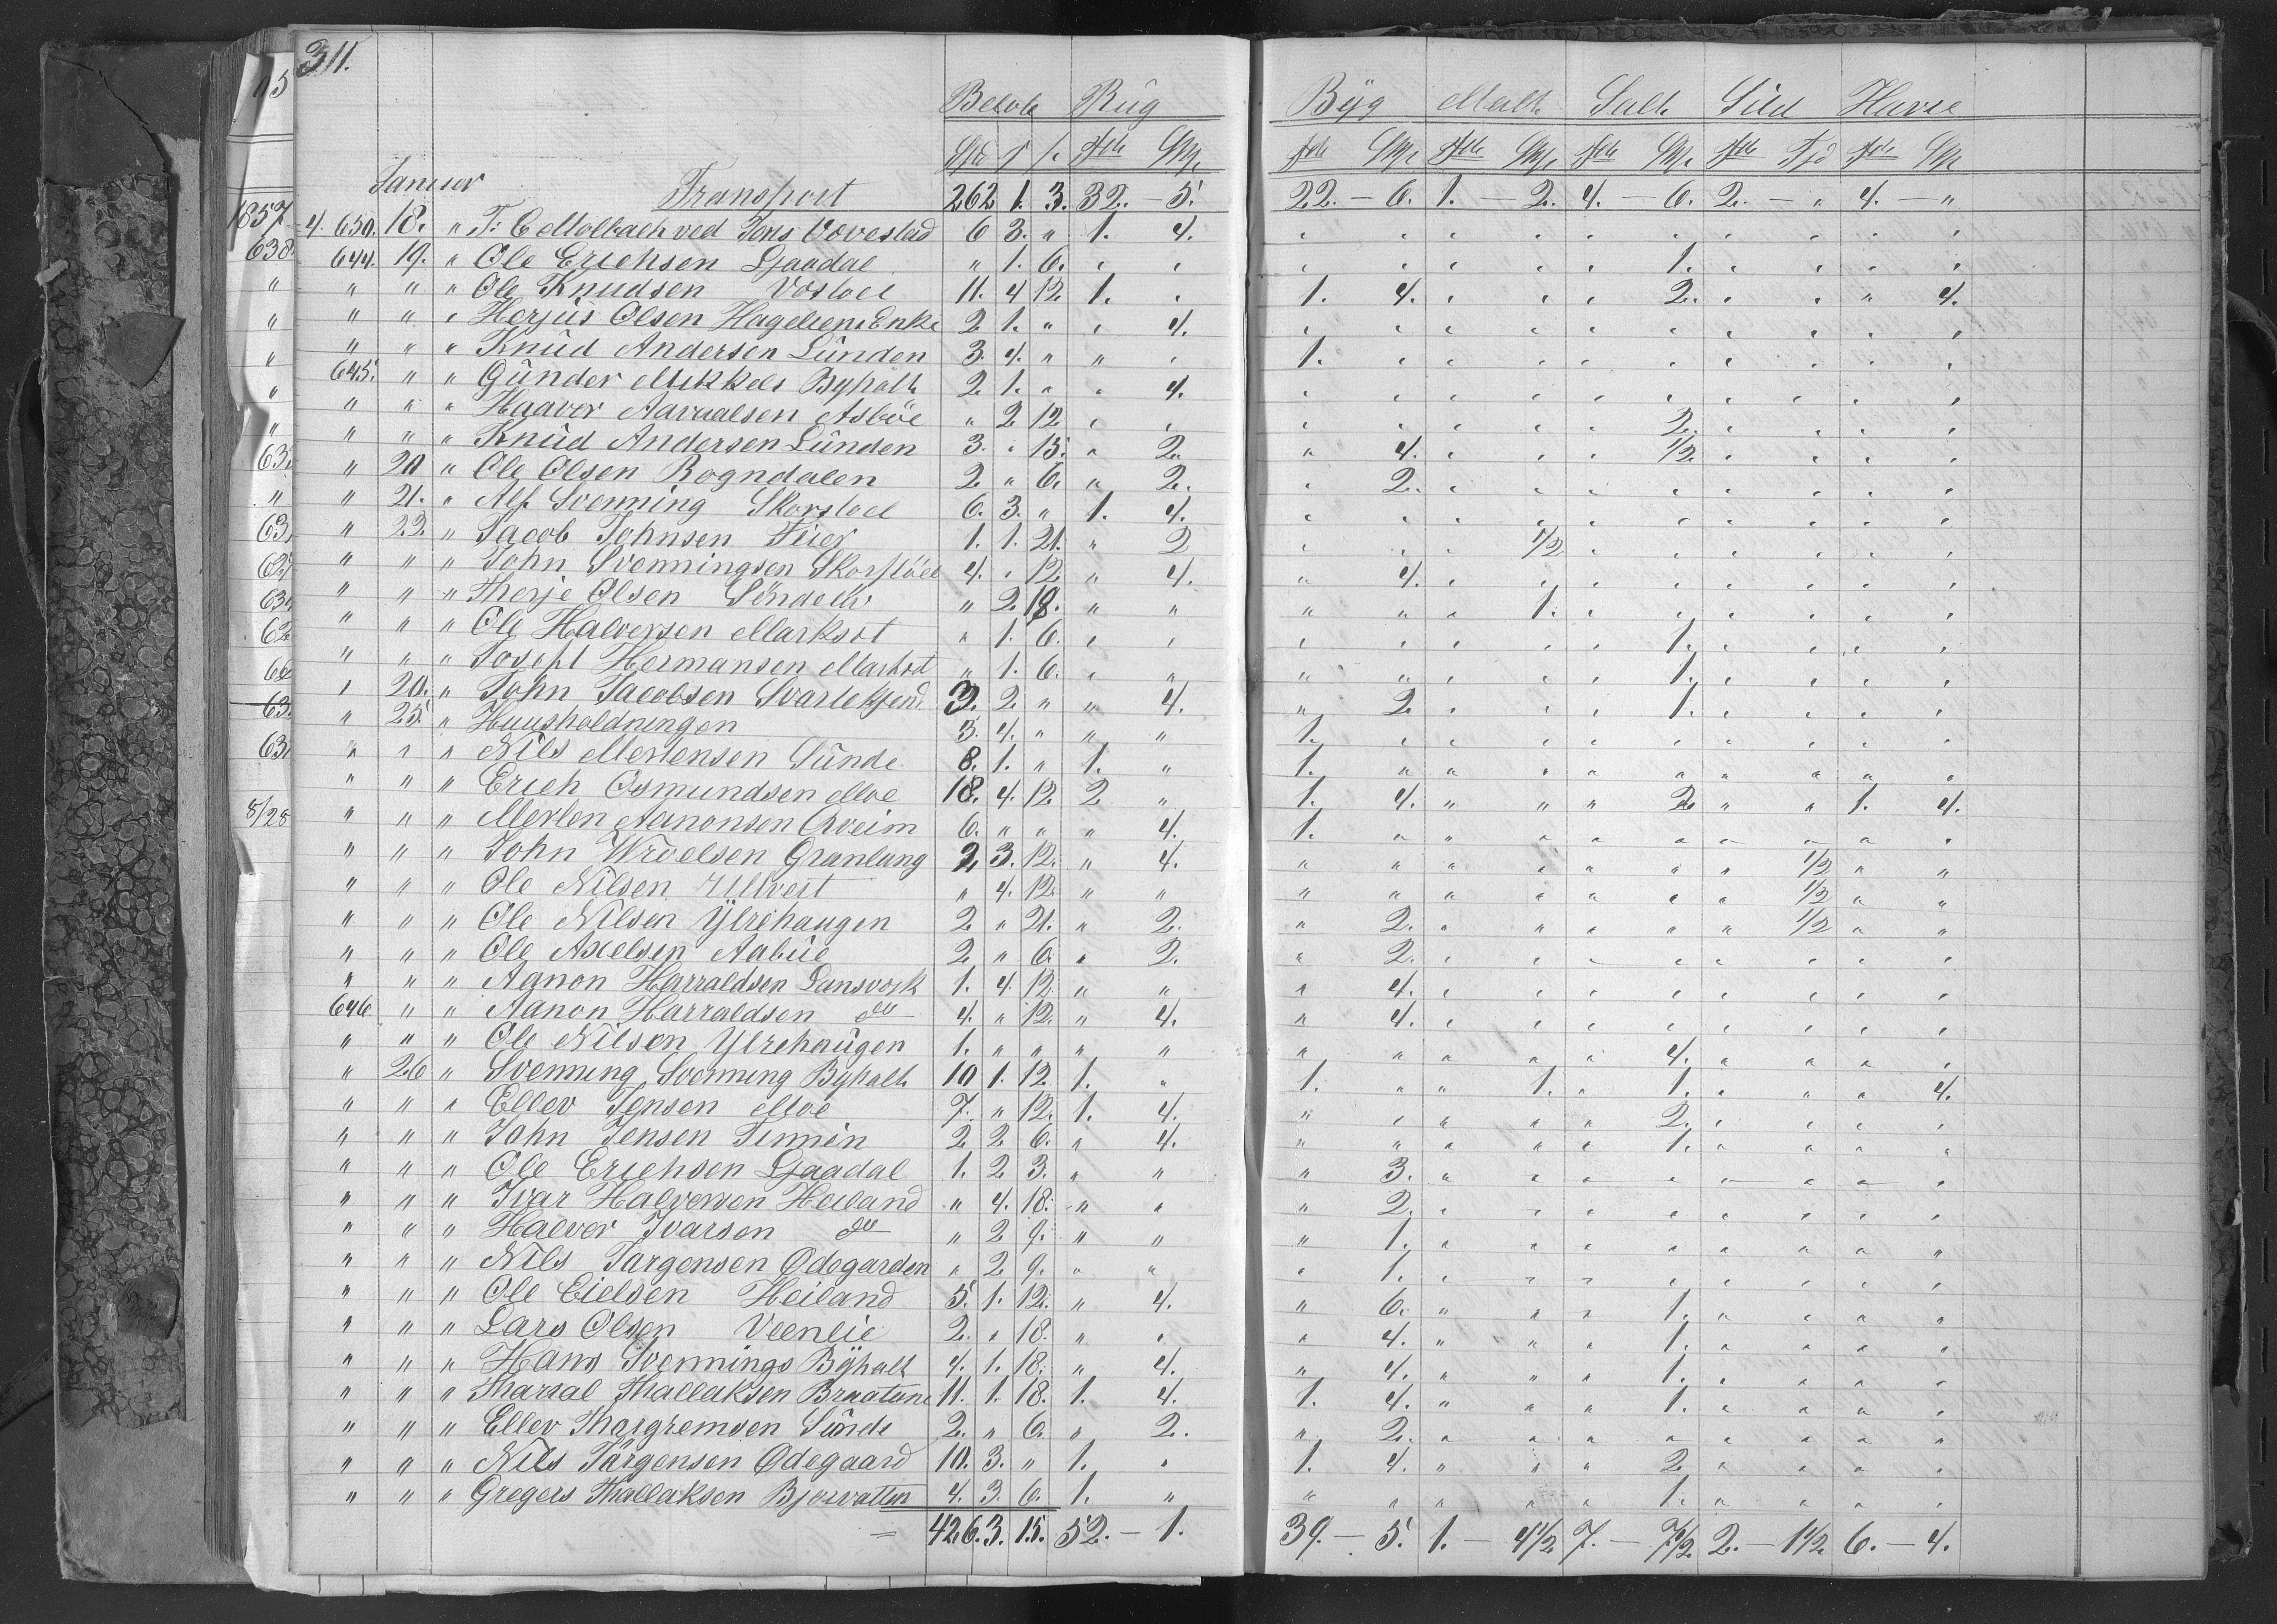 311.
Beløb Rug Byg Malt Salt Sild Havre
Januar
Transport 262 1. 3. 32. — 5. 22. — 6. 1. — 2. 4. — 6. 2. — „ 4. — „
1857 4. 650. 18. „ T. C Mollbach ved Jens Vovestad 6 3. „ 1. 4. „ „ „ „ „ „ „ „ „ „
644. 19. „ Ole Erichsen Ljaadal „ 1. 6. „ „ „ „ „ „ „ 1. „ „ „ „
„ „ „ Ole Knudsen Vosloel 11. 4 12 1. „ 1. 4. „ „ „ 2. „ „ „ 4.
„ „ „ Herjus Olsen Hageliens Enke 2 1. „ „ 4. „ „ „ „ „ „ „ „ „ „
„ „ „ Knud Andersen Lunden 3. 4. „ „ „ 1. „ „ „ „ „ „ „ „ „
645. „ „ Gunder Mikkels Byholt 2 1. „ „ 4. „ „ „ „ „ „ „ „ „ „
„ „ „ Haaver Aavaalsen Asbøe „ 2 12 „ „ „ „ „ „ „ 2. „ „ „ „
„ „ „ Knud Andersen Lunden 3. „ 15. „ 2. „ 4. „ „ „ 1/2. „ „ „ „
„ 20 „ Ole Olsen Rogndalen 2 „ 6. „ 2. „ 2. „ „ „ „ „ „ „ „
„ 21. „ Alf Svenning Skorsloel 6. 3. „ 1. 4. „ „ „ „ „ „ „ „ „ „
„ 22 „ Jacob Johnsen Feier 1. 1. 21. „ 2 „ „ „ 1/2 „ „ „ „ „ „
„ „ „ John Svenningsen Skorsløel 4. „ 12 „ 4. „ 4. „ „ „ „ „ „ „ „
„ „ „ Therje Olsen Søndelev „ 2. 18. „ „ „ „ „ 1. „ „ „ „ „ „
„ „ „ Ole Halversen Marksot „ 1. 6. „ „ „ „ „ „ „ 1. „ „ „ „
„ „ „ Joseph Hermansen Marksot „ 1. 6. „ „ „ „ „ „ „ 1. „ „ „ „
„ 20. „ John Jacobsen Svartekjend 3. 2. „ „ 4. „ 2 „ „ „ 1. „ „ „ „
„ 25. „ Huusholdningen 3. 4. „ „ „ 1. „ „ „ „ „ „ „ „ „
„ „ „ Nils Mertensen Sunde 8. 1. „ 1. „ 1. „ „ „ „ „ „ „ „ „
„ „ „ Erich Osmundsen Moe 18. 4. 12 2 „ 1. 4. „ „ „ 2 „ „ 1. 4.
„ „ „ Merten Aanonsen Qveim 6. „ „ „ 4. 1. „ „ „ „ „ „ „ „ „
„ „ „ John Wroelsen Granlung 2 3. 12. „ 4. „ „ „ „ „ „ „ 1/2 „ „
„ „ „ Ole Nilsen Ulveit „ 4. 12. „ „ „ „ „ „ „ „ „ 1/2 „ „
„ „ „ Ole Nilsen Ytrehaugen 2 „ 21. „ 2. „ 2. „ „ „ „ „ 1/2 „ „
„ „ „ Ole Axelsen Aabue 2 „ 6. „ 2. „ 2. „ „ „ „ „ „ „ „
„ „ „ Aanon Harraldsen Lansverk 1. 4 12 „ „ „ 4. „ „ „ „ „ „ „ „
646 „ „ Aanon Harraldsen do 4. „ 12. „ 4. „ 4. „ „ „ „ „ „ „ „
„ „ „ Ole Nilsen Ytrehaugen 1. „ „ „ „ „ „ „ „ „ 4. „ „ „ „
„ 26 „ Svenning Svenning Byholt 10 1. 12. 1. „ 1. „ „ 1. „ 1. „ „ „ 4.
„ „ „ Ellev Jensen Moe 7. „ 12. 1. 4. „ „ „ „ „ 2. „ „ „ „
„ „ „ John Jensen Timnen 2. 2 6. „ 4. „ „ „ „ „ 1. „ „ „ „
„ „ „ Ole Erichsen Ljaadal 1. 2 3. „ „ „ 3. „ „ „ „ „ „ „ „
„ „ „ Ivar Halversen Heiland „ 4. 18. „ „ „ 2. „ „ „ „ „ „ „ „
„ „ „ Halver Ivarsen do „ 2 9. „ „ „ 1. „ „ „ „ „ „ „ „
„ „ „ Nils Jørgensen Ødegarden „ 2 9. „ „ „ 1. „ „ „ „ „ „ „ „
„ „ „ Ole Eielsen Heiland 5. 1. 12. „ 4. „ 6. „ „ „ 1. „ „ „ „
„ „ „ Lars Olsen Veenlie 2. „ 18. „ „ „ 4. „ „ „ 1. „ „ „ „
„ „ „ Hans Svennings Byholt 4. 1. 18. „ 4. „ 4. „ „ „ 1. „ „ „ „
„ „ „ Tharral Thallaksen Braatene 11. 1. 18. 1. 4. 1. 4. „ „ „ 1. „ „ „ „
„ „ „ Ellev Thorgremsen Sunde 2. „ 6. „ 2. „ 2. „ „ „ „ „ „ „ „
„ „ „ Nils Jørgensen Ødegaard 10. 3. „ 1. „ 1. 4. „ „ „ 2 „ „ „ „
„ „ „ Gregers Thallaksen Bjorvatten 4. 3. 6. 1. „ „ „ „ „ „ 1. „ „ „ „
= 426. 3. 15. 52. — 1. 39. — 5. 1. — 4 1/2 7. — 7 1/2 2. — 1 1/2. 6. — 4.